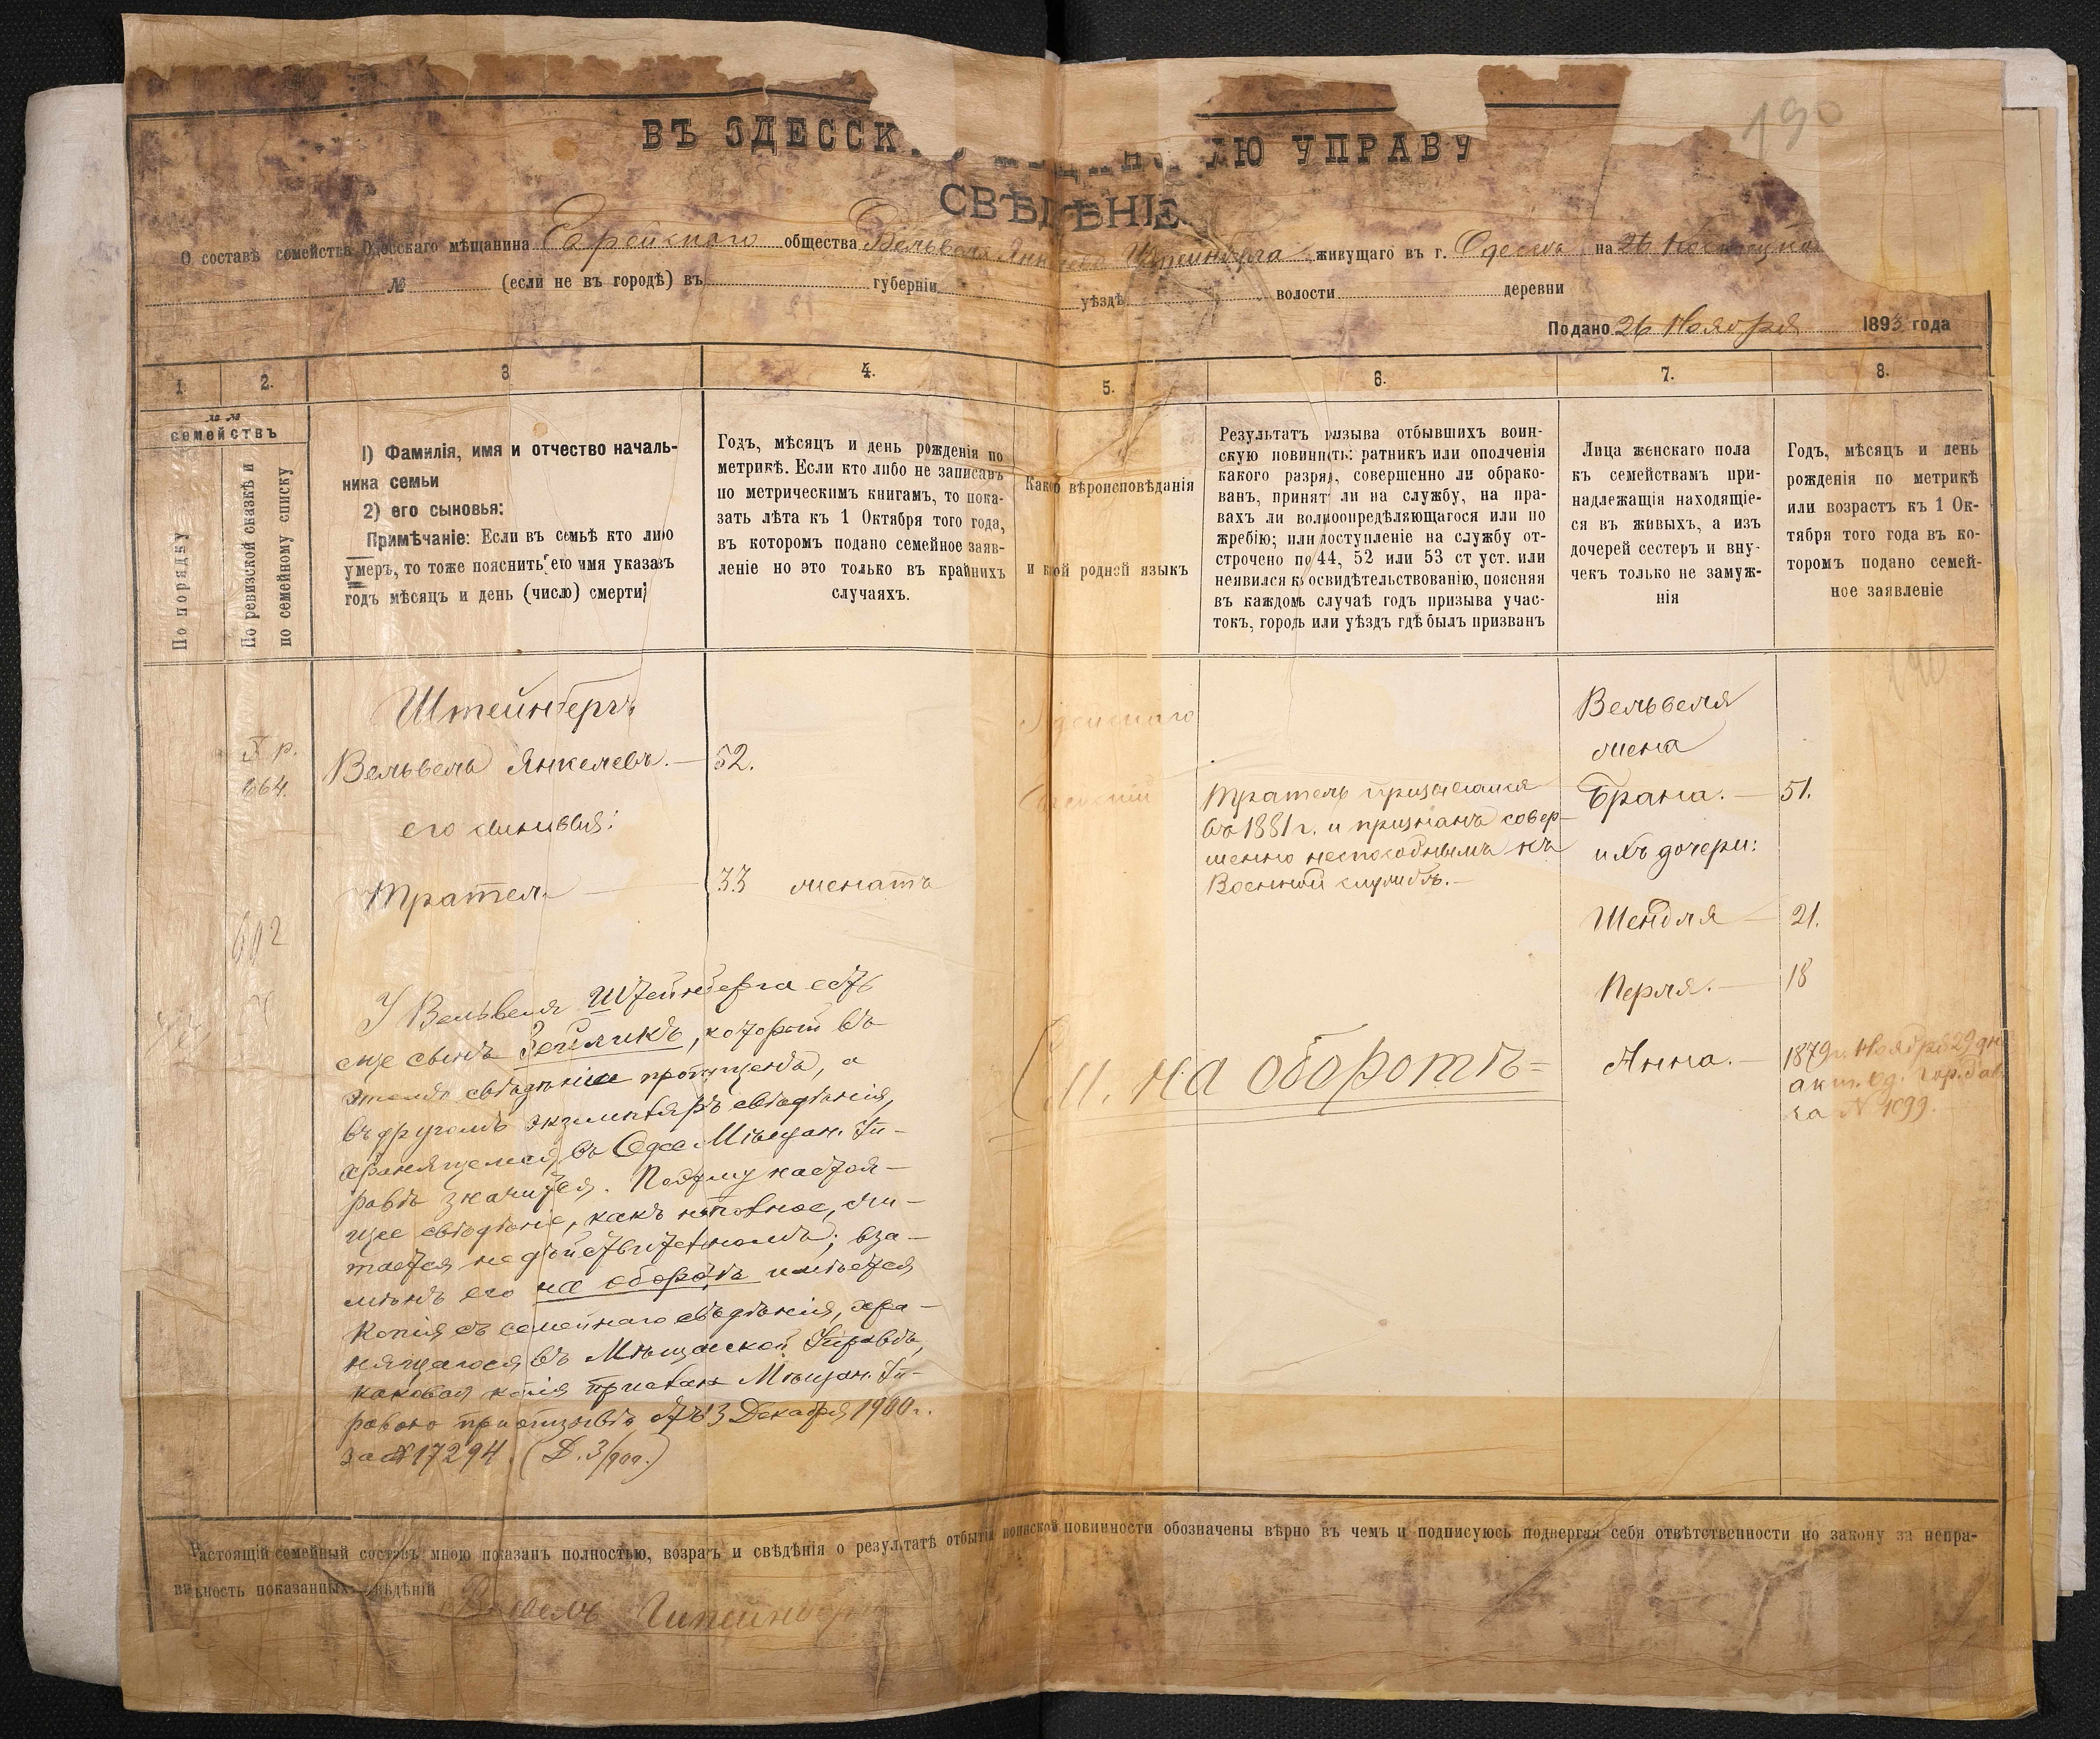 190
ВЪ ОДЕССК УПРАВУ
СВѢДѢНІЕ
О составѣ семейства Одесскаго мѣщанина Еврейскаго общества Вельвеля Янкелева Штейнберга живущаго въ г. Одесса на 26 Ноября
№ (если не въ городѣ) въ губерніи уѣздѣ волости деревни
Подано 26 Ноября 1893 года
1. 2. 3 4. 5. 6. 7. 8.
№ №
семействъ
По порядку
По ревизской сказкѣ и
по семейному списку
1) Фамилія, имя и отчество началь-
ника семьи
2) его сыновья:
Примѣчаніе: Если въ семьѣ кто либо
умеръ, то тоже пояснить его имя указавъ
годъ мѣсяцъ и день (число) смерти;
Годъ, мѣсяцъ и день рожденія по
метрикѣ. Если кто либо не записанъ
по метрическимъ книгамъ, то пока-
зать лѣта къ 1 Октября того года,
въ которомъ подано семейное заяв-
леніе но это только въ крайнихъ
случаяхъ.
Какого вѣроисповѣданія
и какой родной языкъ
Результатъ призыва отбывшихъ воин-
скую повинность: ратникъ или ополченія
какого разряда, совершенно ли обрако-
ванъ, принятъ ли на службу, на пра-
вахъ ли вольноопредѣляющагося или по
жребію; или поступленіе на службу от-
строчено по 44, 52 или 53 ст уст. или
неявился къ освидѣтельствованію, поясняя
въ каждомъ случаѣ годъ призыва учас-
токъ, городъ или уѣздъ гдѣ былъ призванъ
Лица женскаго пола
къ семействамъ при-
надлежащія находящіе-
ся въ живыхъ, а изъ
дочерей сестеръ и вну-
чекъ только не замуж-
нія
Годъ, мѣсяцъ и день
рожденія по метрикѣ
или возрастъ къ 1 Ок-
тября того года въ ко-
торомъ подано семей-
ное заявленіе
190
Штейнбергъ
X р.
664.
Вельвель Янкелевъ. — 52.
его сыновья:
Тратель — 33 женатъ
602
Еврейскаго
Еврейскій
Тратель призывался
въ 1881 г. и признанъ совер-
шенно неспособнымъ къ
Военной службѣ. —
Вельвеля
жена
Брана. — 51.
ихъ дочери:
Шендля — 21.
Перля. — 18
Анна. — 1879 г. Ноября 29 дня
акт. Од. Гор. Рав.
за № 1099.
См. на оборотѣ =
У Вельвеля Штейнберга есть
еще сынъ Зейликъ, который въ
этомъ свѣдѣніи пропущенъ, а
въ другомъ экземплярѣ свѣдѣнія,
хранящемся въ Одес. Мѣщан. Уп-
равѣ значится. Поэтому настоя-
щее свѣдѣніе, какъ неполное, счи-
тается недѣйствительнымъ; вза-
мѣнъ его на оборотѣ имѣется
Копія съ семейнаго свѣдѣнія, хра-
нящагося въ Мѣщанской Управѣ,
каковая копія прислана Мѣщан. Уп-
равою при отзывѣ отъ 3 Декабря 1900 г.
за № 17294. (Д. 3/900.)
Настоящій семейный составъ мною показанъ полностью, возрастъ и свѣдѣнія о результатѣ отбытія воинской повинности обозначены вѣрно въ чемъ и подписуюсь подвергая себя отвѣтственности по закону за непра-
вильность показанныхъ свѣдѣній
Вельвель Штейнбергъ